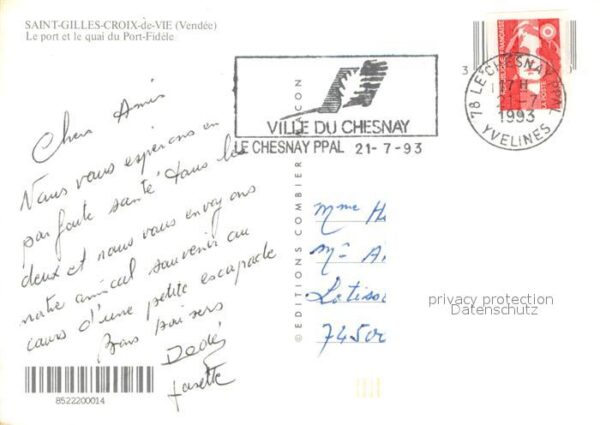 SAINT-GILLES-CROIX-de-VIE (Vendée)
Le port et le quai du Port-Fidèle
Chers Amis
Nous vous espérons en
parfaite santé tous les
deux et nous vous envoyons
notre amical souvenir au
cours d'une petite escapade
Bons baisers
Dedé
Josette
8522200014
VILLE DU CHESNAY
LE CHESNAY PPAL 21-7-93
78 LE CHESNAY
17H
1993
YVELINES
© EDITIONS COMBIER MACON
Mme
Lotiss
7450
privacy protection
Datenschutz